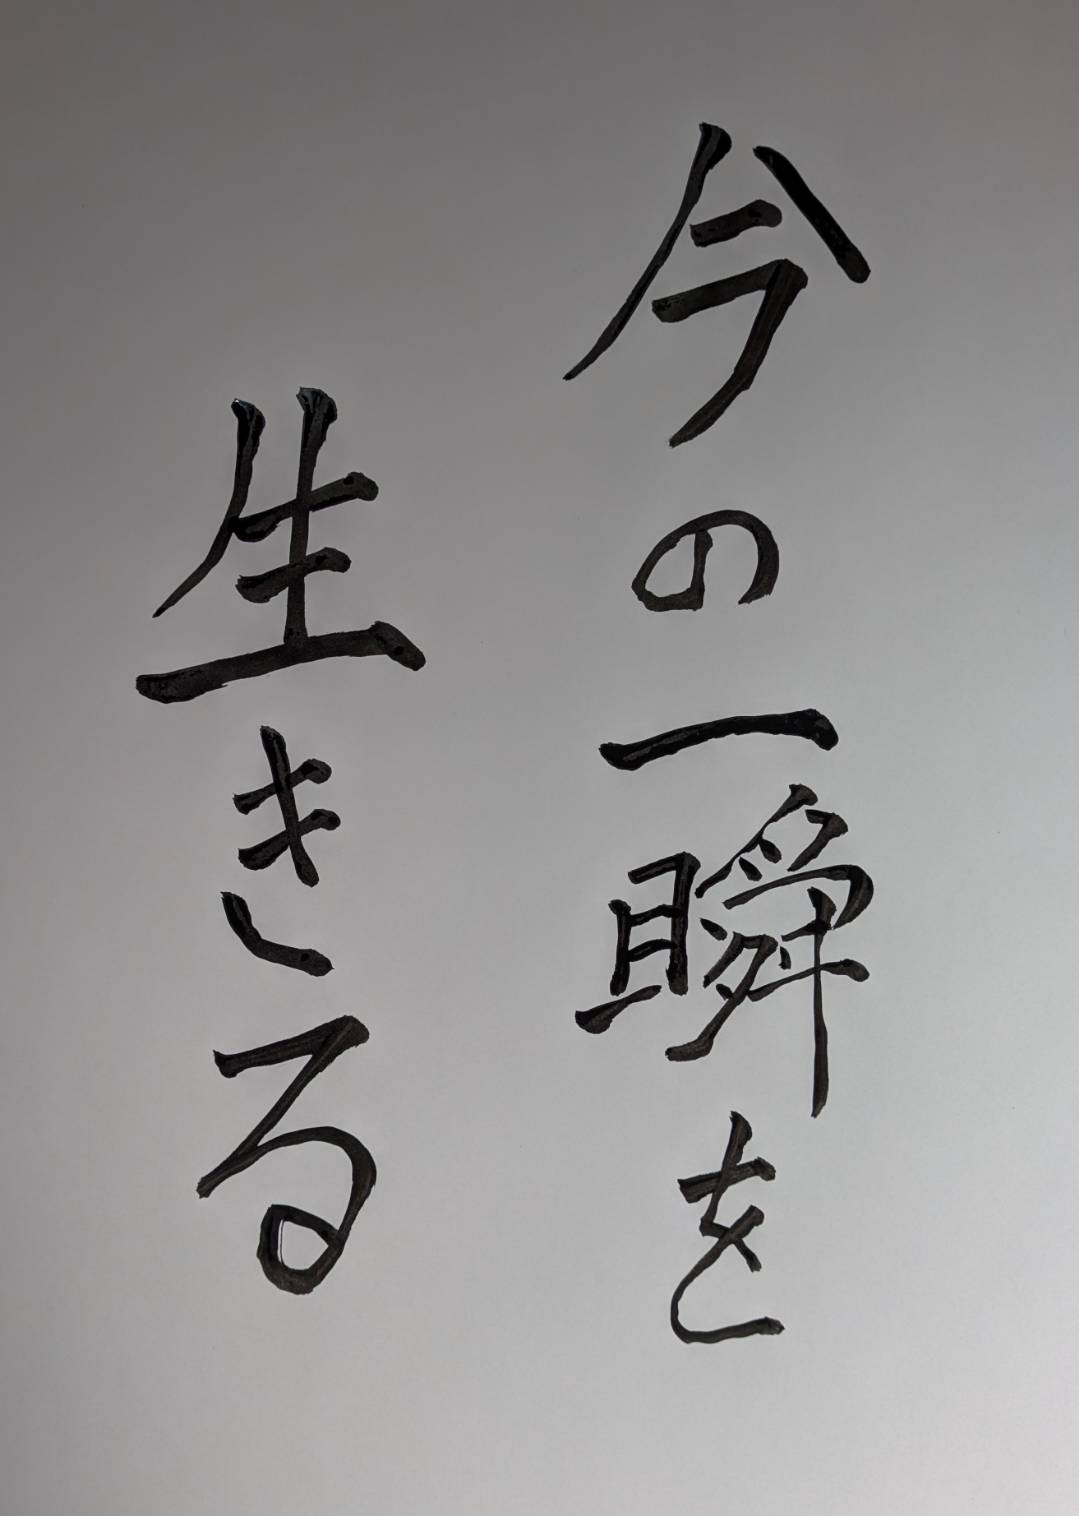 今の一瞬を
生きる